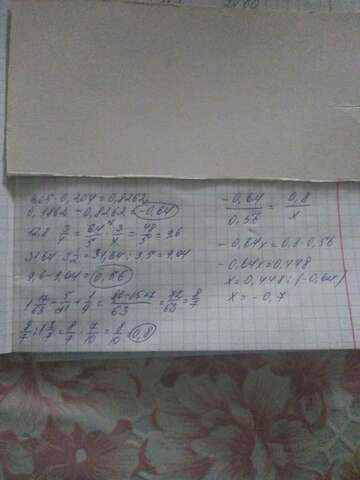 4,05·0,204=0,8262
0,1862-0,8262=-0,64
12,8·3/4=64/5·3/4=48/5=9,6
31,64:3,5=9,04
9,6-9,04=0,56
1 17/63-5/21+1/9=80-15+7/63=72/63=8/7
8/7:1 3/7=8/7·7/10=8/10=0,8
-0,64/0,56=0,8/x
-0,64x=0,8·0,56
-0,64x=0,448
x=0,448:(-0,64)
x=-0,7